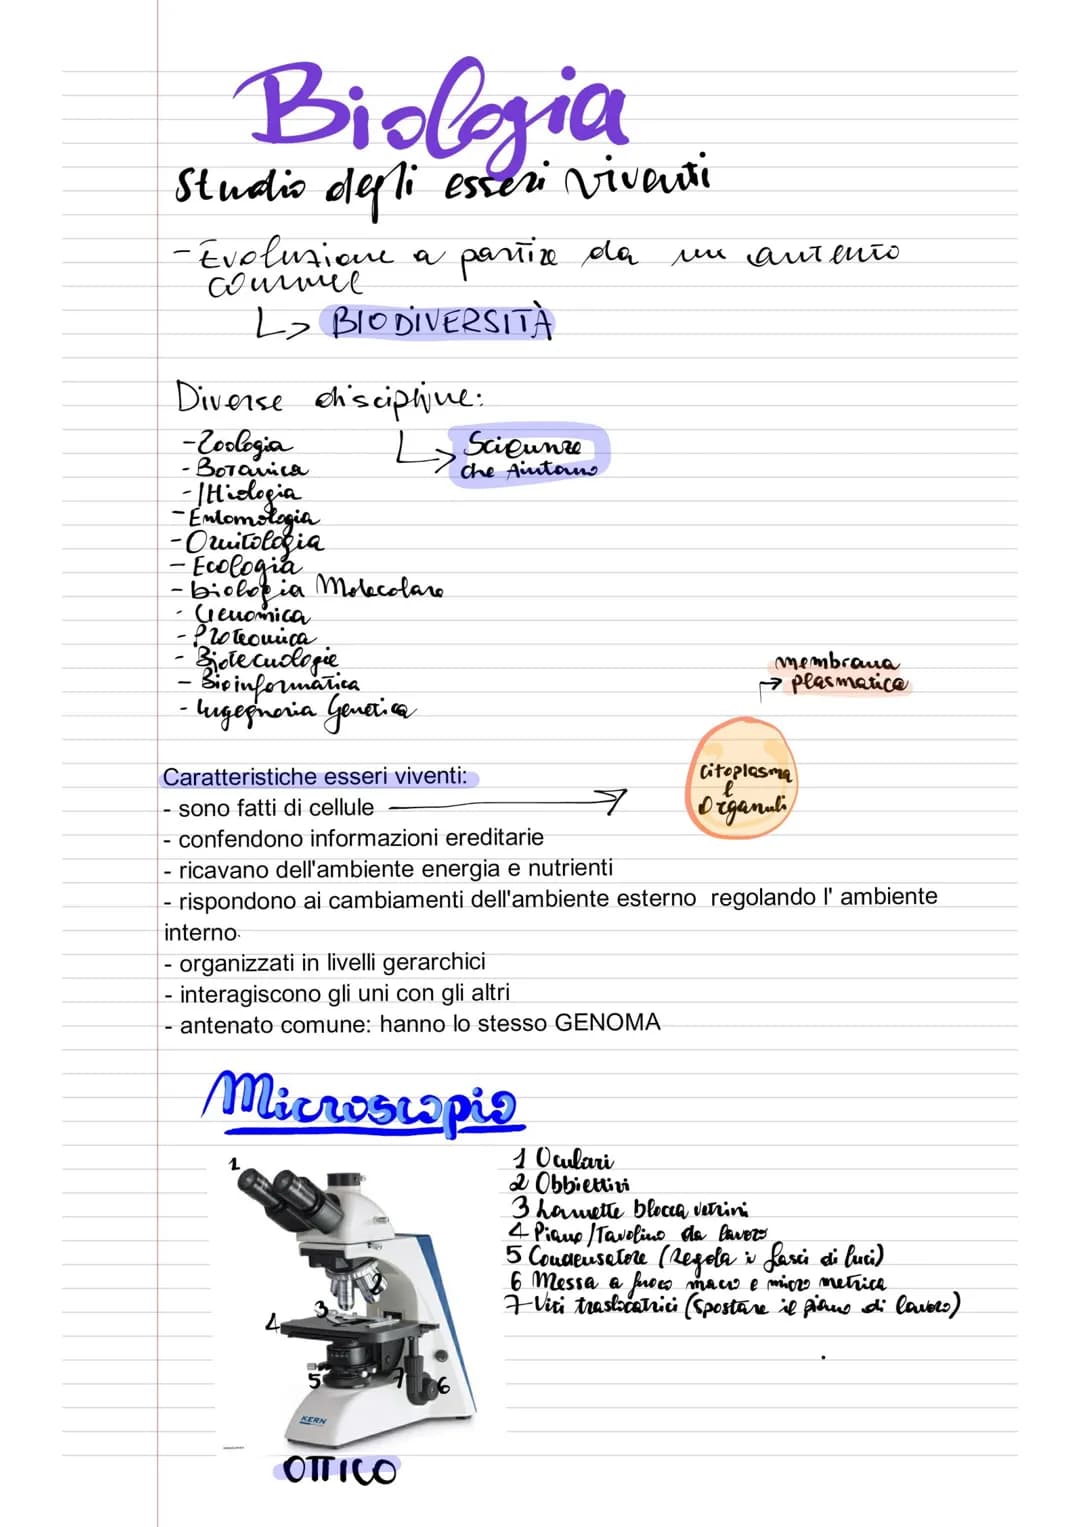 Biologia
Studio degli esseri viventi
- Evoluzione a partire da un antento
comune
↳ BIODIVERSITÀ
Diverse discipline:
↳ Scienze
che Aiutano
- Zoologia
- Botanica
- Ittiologia
- Entomologia
- Ornitologia
- Ecologia
- biologia Molecolare
- Genomica
- Proteomica
- Biotecnologie
- Bioinformatica
- Ingegneria Genetica
membrana
→ plasmatica
Citoplasma
e
Organuli
Caratteristiche esseri viventi:
- sono fatti di cellule
- confendono informazioni ereditarie
- ricavano dell'ambiente energia e nutrienti
- rispondono ai cambiamenti dell'ambiente esterno regolando l' ambiente
interno.
- organizzati in livelli gerarchici
- interagiscono gli uni con gli altri
- antenato comune: hanno lo stesso GENOMA
Microscopio
1 Oculari
2 Obbiettivi
3 Lamette blocca vetrini
4 Piano/Tavolino da lavoro
5 Condensatore (Regola i fasci di luci)
6 Messa a fuoco macro e micro metrica
7 Viti traslocatrici (spostare il piano di lavoro)
1
2
3
4
5
7
6
KERN
OTTICO